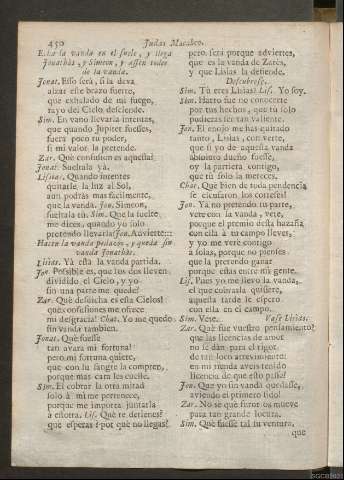 450 Judas Macabeo.
Echa la vanda en el suelo, y llega
Jonathàs, y Simeon, y assen todos
de la vanda.
Jonat. Esso serà, si la dexa
alzar este brazo fuerte,
que exhalado de mi fuego,
rayo del Cielo desciende.
Sim. En vano llevarla intentas,
que quando Jupiter fuesses,
fuera poco tu poder,
si mi valor la pretende.
Zar. Què confusion es aquesta!
Jonat. Sueltala yà.
Lisias. Quando intentes
quitarle la luz al Sol,
aun podràs mas facilmente,
que la vanda. Jon. Simeon,
sueltala tù. Sim. Que la suelte
me dices, quando yo solo
pretendo llevarla? Jon. Advierte:::
Hacen la vanda pedazos, y queda sin
vanda Jonathàs.
Lisias. Yà està la vanda partida.
Jon. Possible es, que los dos lleven
dividido el Cielo, y yo
sin una parte me quede?
Zar. Què desdicha es esta Cielos!
què confusiones me ofrece
mi desgracia! Chat. Yo me quedo
sin vanda tambien.
Jonat. Què fuesse
tan avara mi fortuna!
pero mi fortuna quiere,
que con su sangre la compren,
porque mas cara les cueste.
Sim. El cobrar la otra mitad
solo à mi me pertenece,
porque me importa juntarla
à estotra. Lis. Què te detienes?
què esperas? por què no llegas?
pero serà porque adviertes,
que es la vanda de Zarès,
y que Lisias la defiende.
Descubrese.
Sim. Tù eres Lisias? Lis. Yo soy.
Sim. Harto fue no conocerte
por tus hechos, que tù solo
pudieras ser tan valiente.
Jon. El enojo me has quitado
tanto, Lisias, con verte,
que si yo de aquesta vanda
absoluto dueño fuesse,
oy la partiera contigo,
que tù solo la mereces.
Chat. Què bien de toda pendencia
se escusaron los corteses!
Jon. Yà no pretendo tu parte,
vete con la vanda, vete,
porque el premio desta hazaña
con ella à tu campo lleves,
y yo me verè contigo
à solas, porque no pienses
que la pretendo ganar
porque estàs entre mi gente.
Lis. Pues yo me llevo la vanda,
el que cobrarla quisiere,
aquesta tarde le espero
con ella en el campo.
Sim. Vete. Vase Lisias.
Zar. Què fue vuestro pensamiento?
què las licencias de amor
no se dàn para el rigor
de tan loco atrevimiento:
en mi tienda aveis tenido
licencia de que esto passe?
Jon. Que yo sin vanda quedasse,
aviendo el primero sido!
Zar. No sè què furor os mueve
para tan grande locura.
Sim. Que fuesse tal su ventura,
que